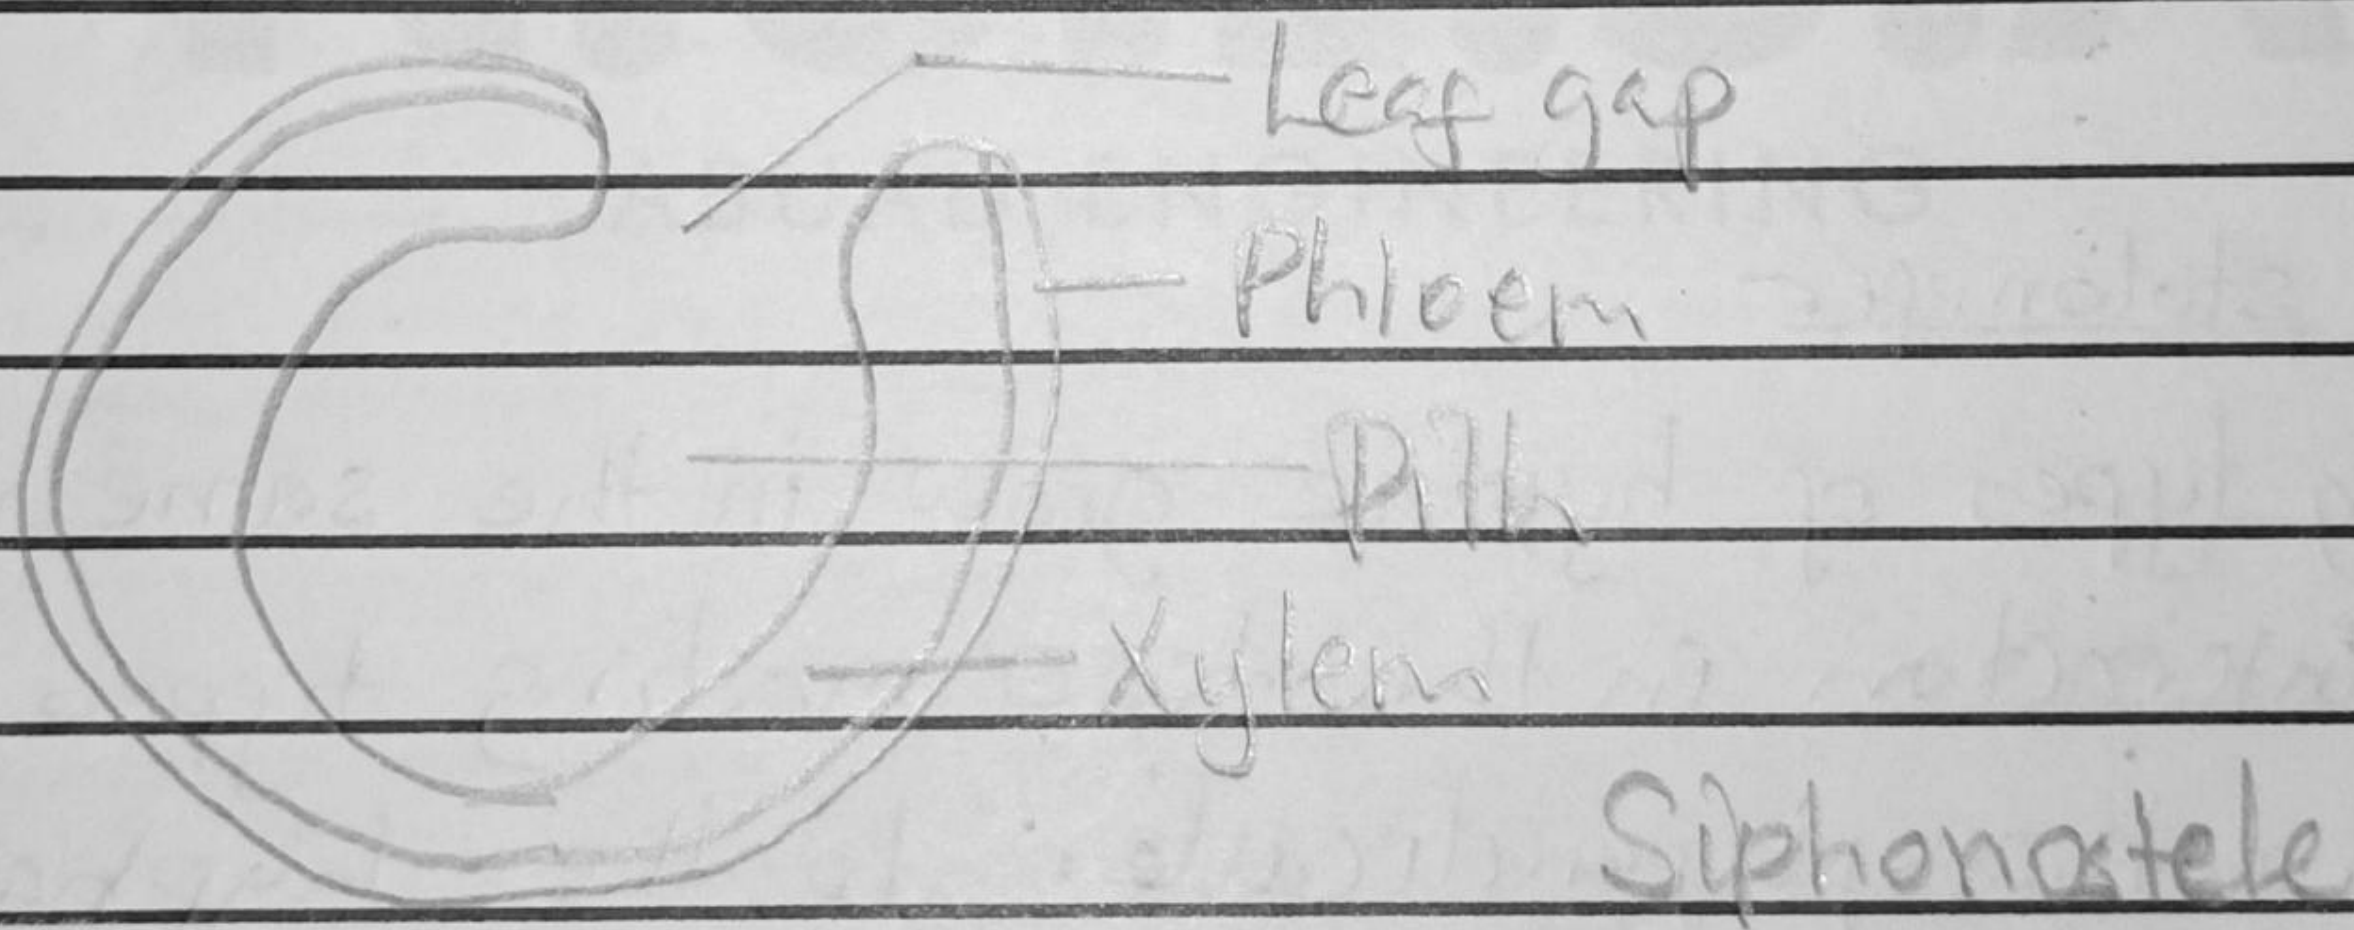 Leaf gap
Phloem
Pith
Xylem
Siphonostele